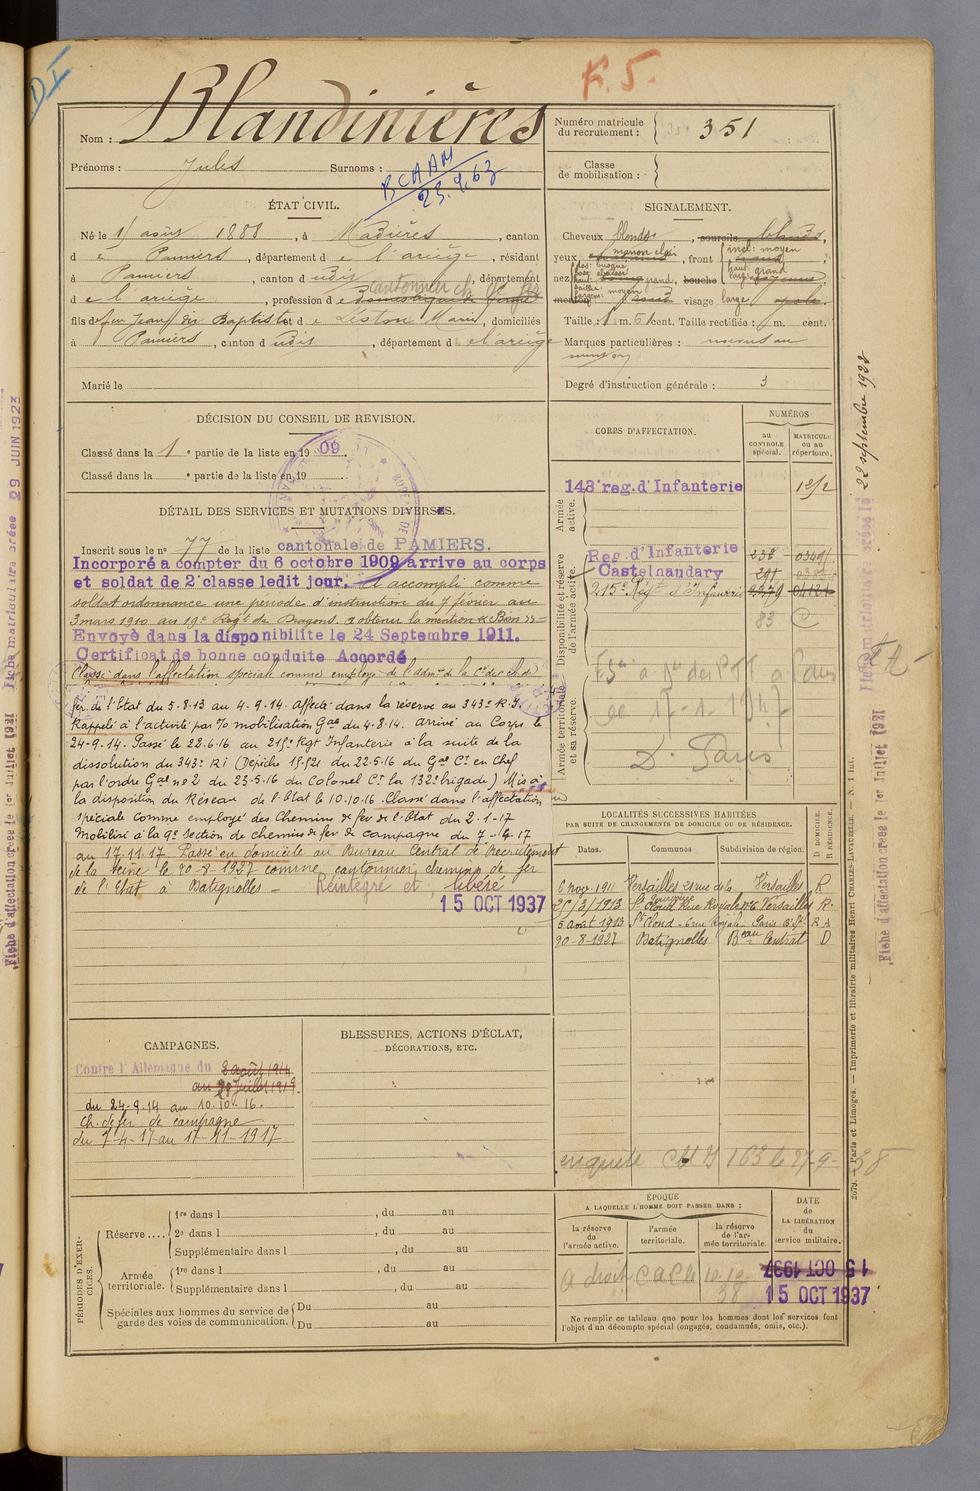 D I
F. 5.
Nom : Blandinières
Prénoms : Jules Surnoms :
BCAAM
23.4.63
ÉTAT CIVIL.
Né le 1er août 1888, à Madières, canton
d e Pamiers, département d e l'ariège, résidant
à Pamiers, canton d udit, département
d e l'ariège, profession d e cantonnier ch. de fer
fils de feu Jean Baptiste et d e Marie, domiciliés
à Pamiers, canton d udit, département d e l'ariège
Marié le
DÉCISION DU CONSEIL DE REVISION.
Classé dans la 1 e partie de la liste en 1909.
Classé dans la e partie de la liste en 19
DÉTAIL DES SERVICES ET MUTATIONS DIVERSES.
Inscrit sous le n° 77 de la liste cantonale de PAMIERS.
Incorporé a compter du 6 octobre 1909 arrive au corps
et soldat de 2e classe ledit jour. A accompli comme
soldat ordonnance une période d'instruction du 7 février au
3 mars 1910 au 19e Regt de Dragons. a obtenu la mention « Bon »
Envoyé dans la disponibilite le 24 Septembre 1911.
Certificat de bonne conduite Accordé
Classé dans l'affectation spéciale comme employé de l'admon de la Cie des ch. de
fer de l'Etat du 5.8.13 au 4.9.14. affecté dans la réserve au 343e R.I.
Rappelé à l'activité par % mobilisation Gale du 4.8.14. arrivé au Corps le
24-9-14. Passé le 22.6.16 au 215e Rgt Infanterie à la suite de la
dissolution du 343e RI (Dépêche 15.521 du 22.5.16 du Gal Ct en Chef
par l'ordre Gal no 2 du 23.5.16 du Colonel Ct la 132e brigade) Mis à
la disposition du Réseau de l'Etat le 10.10.16. Classé dans l'affectation
spéciale comme employé des Chemins de fer de l'Etat du 2-1-17
Mobilisé à la 9e Section de chemins de fer de campagne du 7-4-17
au 17.11.17. Passé en domicile au Bureau Central de Recrutement
de la Seine le 20-8-1927 comme cantonnier chemins de fer
de l'Etat à Batignolles - Réintégré et libéré
15 OCT 1937
CAMPAGNES.
Contre l'Allemagne du 2 août 1914
au 28 Juillet 1919.
du 24-9-14 au 10.10.16.
ch. de fer de campagne
du 7-4-17 au 17-11-1917
BLESSURES, ACTIONS D'ÉCLAT,
DÉCORATIONS, ETC.
PÉRIODES D'EXERCICES.
Réserve....
1re dans l , du au
2e dans l , du au
Supplémentaire dans l , du au
Armée territoriale.
1re dans l , du au
Supplémentaire dans l , du au
Spéciales aux hommes du service de garde des voies de communication.
Du au
Du au
Numéro matricule du recrutement : 351
Classe de mobilisation :
SIGNALEMENT.
Cheveux blonds, sourcils blonds,
yeux marron clair, front incl: moyen
haut: grand
nez dos: busqué
base: abaissé
haut: grand, bouche
menton rond visage large ovale.
Taille : 1 m. 61 cent. Taille rectifiée : m. cent.
Marques particulières :
Degré d'instruction générale : 3
CORPS D'AFFECTATION.
NUMÉROS
au contrôle spécial.
MATRICULE ou au répertoire.
Armée active.
148e reg. d'Infanterie
Disponibilité et réserve de l'armée active.
Reg. d'Infanterie 238
Castelnaudary 291
215e Régt d'Infanterie
83
Armée territoriale et sa réserve.
17-1-1947
D. Paris
LOCALITÉS SUCCESSIVES HABITÉES
PAR SUITE DE CHANGEMENTS DE DOMICILE OU DE RÉSIDENCE.
Dates. Communes Subdivision de région. D. DOMICILE. R. RÉSIDENCE.
6 nov. 1911 Versailles 21 rue de la Versailles R
25/3/1913 St Cloud Rue Royale no 6 Versailles R.
5 août 1913 St Cloud 6 rue Royale Paris R A
20-8-1927 Batignolles Beau Central D
enquête 163 27-9-38
ÉPOQUE
A LAQUELLE L'HOMME DOIT PASSER DANS :
la réserve de l'armée active.
l'armée territoriale.
la réserve de l'armée territoriale.
DATE DE LA LIBÉRATION du service militaire.
a droit CaCu 10-10-38
15 OCT 1937
15 OCT 1937
Ne remplir ce tableau que pour les hommes dont les services font
l'objet d'un décompte spécial (engagés, condamnés, omis, etc.).
22 septembre 1928
Fiche matriculaire créée le
Fiche d'affectation créée le 1er Juillet 1921
2679. — Paris et Limoges. — Imprimerie et librairie militaires Henri CHARLES-LAVAUZELLE. — N. 1 int.
Fiche matriculaire créée 29 JUIN 1923
Fiche d'affectation créée le 1er Juillet 1921